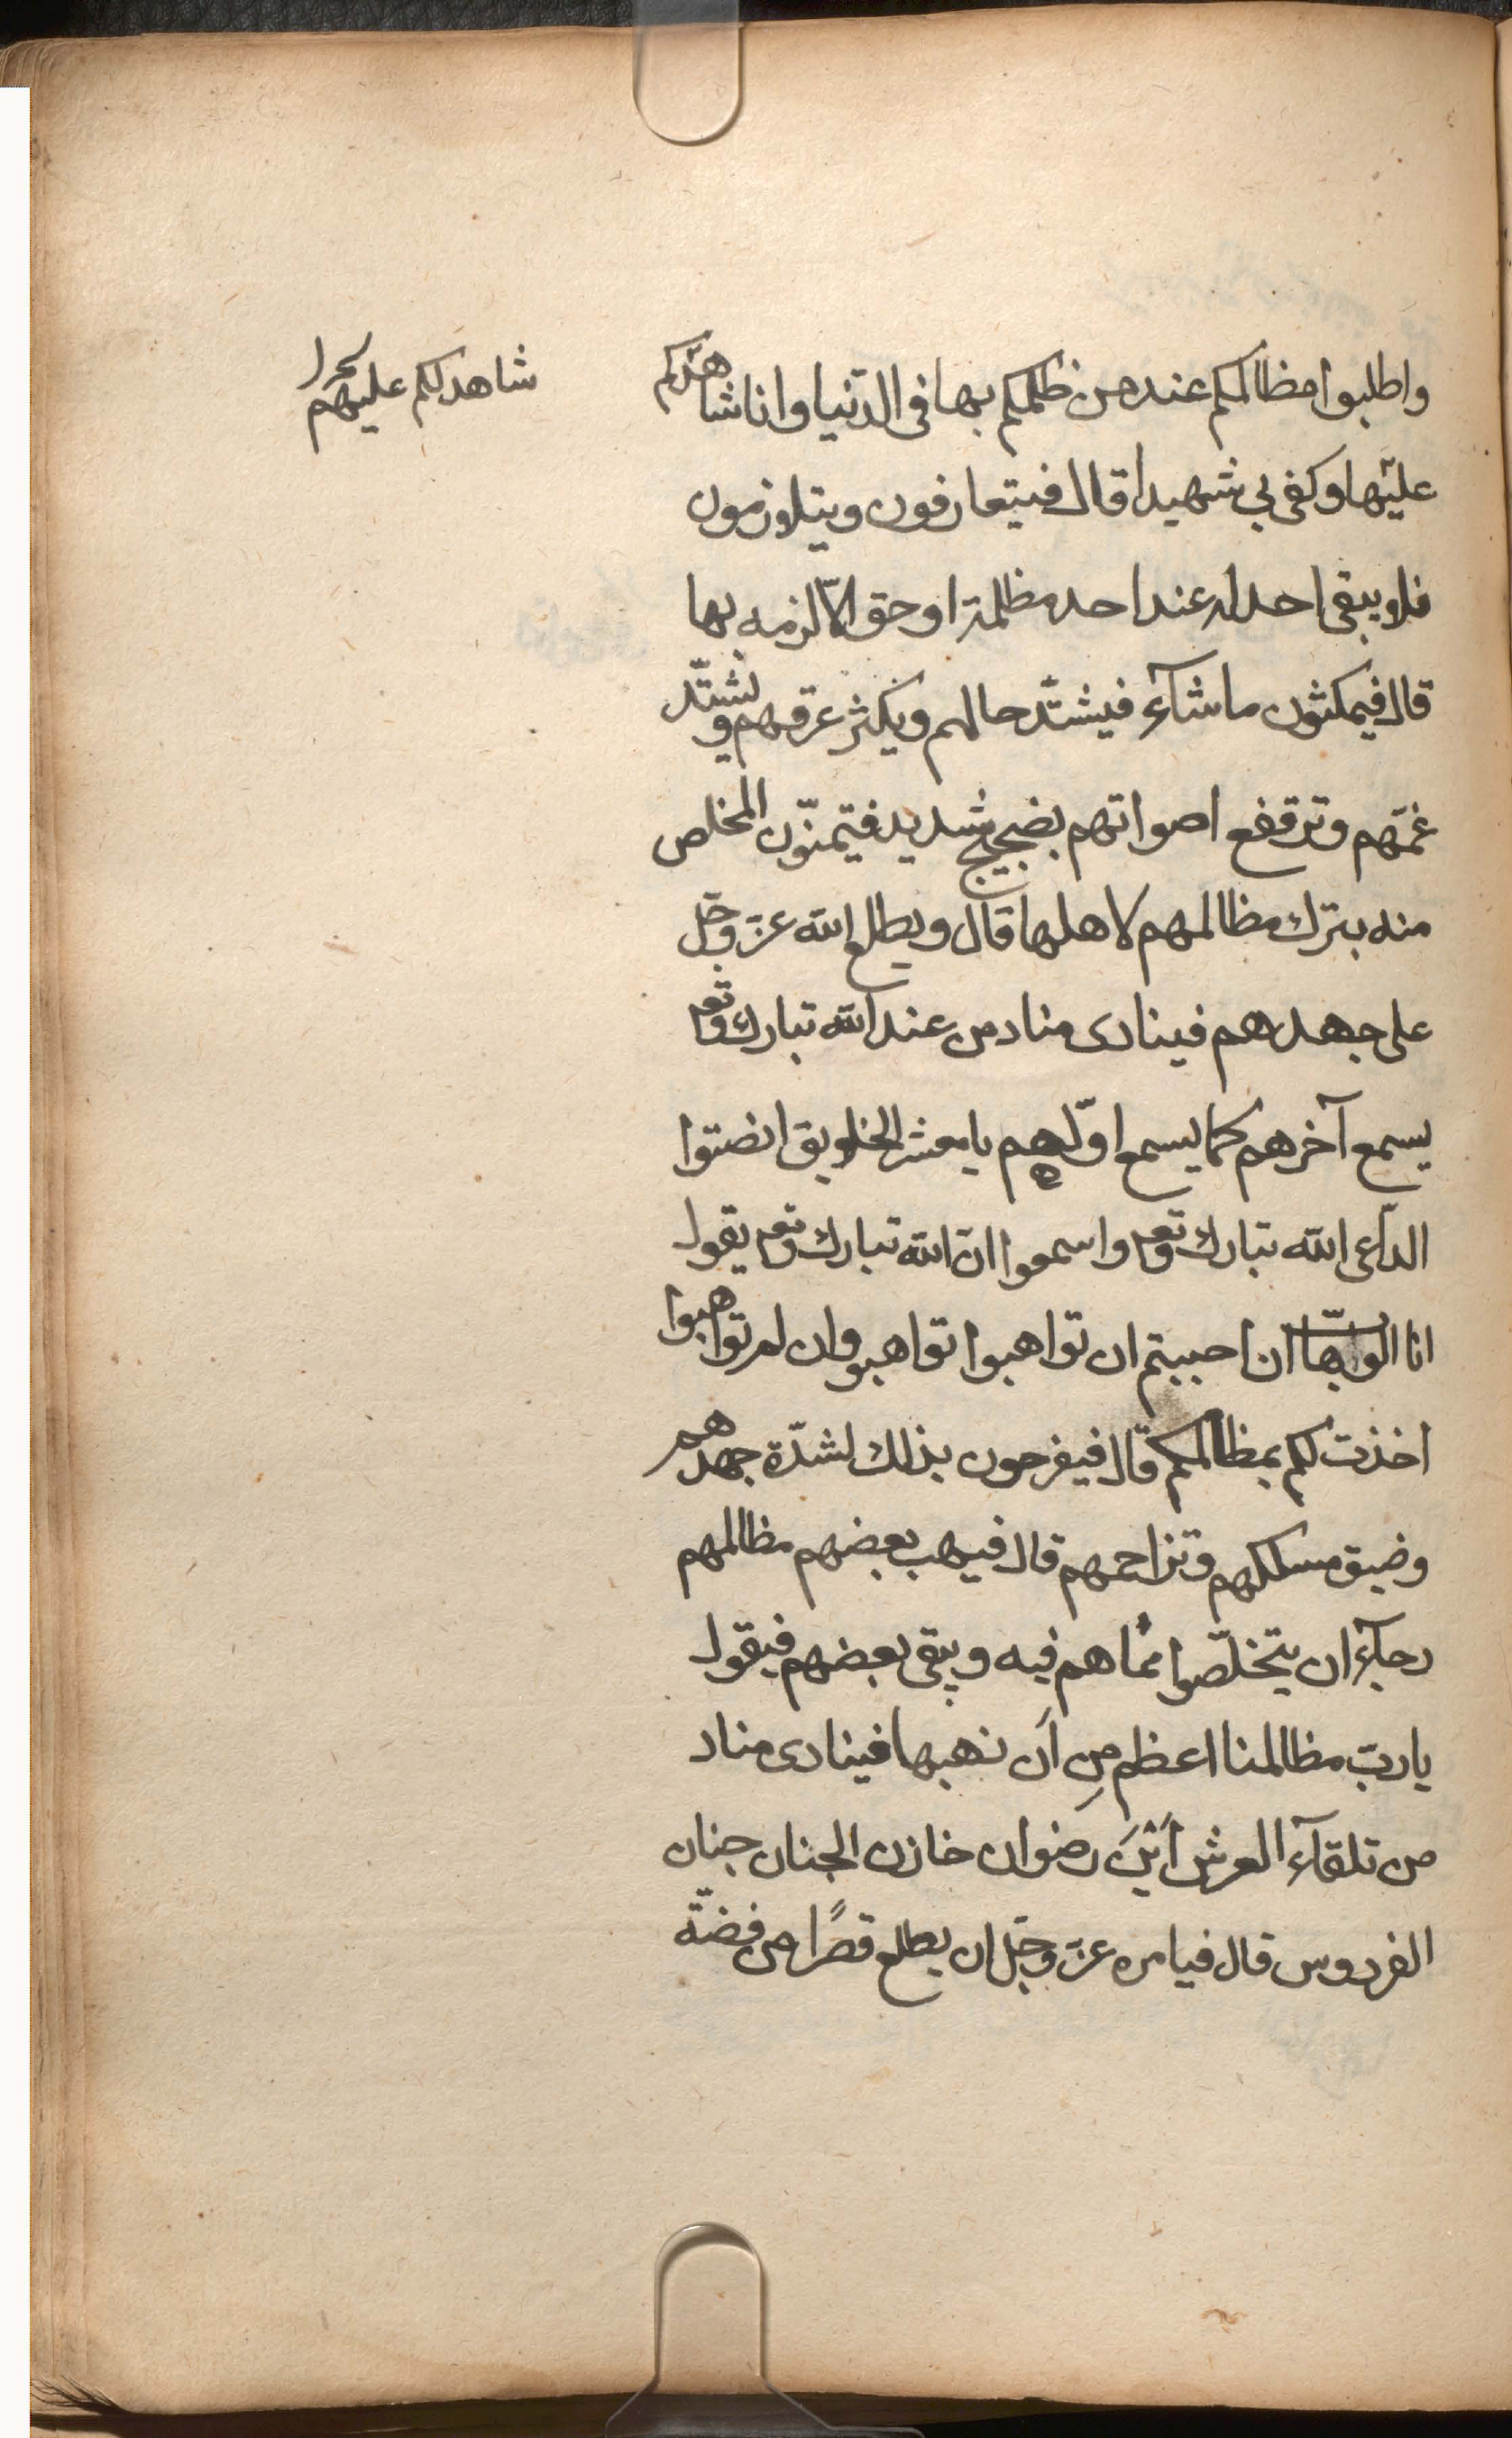 واطلبوا مظالمكم عند من ظلمكم بها فى الدّنيا وانا شاهدكم
عليها وكفى بى شهيدا قال فيتعارفون ويتلازمون
فلا يبقى احد له عند احد مظلمة او حق الّا لزمه بها
قال فيمكثون ما شآء فيشتدّ حالهم ويكثر عرقهم ويشتدّ
غمّهم وترتفع اصواتهم بضجيج شديد فيتمنّون المخلص
منه بترك مظالمهم لاهلها قال ويطلع الله عزّ وجلّ
على جهدهم فينادى مناد من عند الله تبارك وتع
يسمع آخرهم كما يسمع اوّلهم يا معشر الخلايق انصتوا
الدّاعى الله تبارك وتع واسمعوا انّ الله تبارك وتع يقول
انا الوهّاب ان احببتم ان تواهبوا تواهبوا وان لم تواهبوا
اخذت لكم بمظالمكم قال فيفرحون بذلك لشدّة جهدهم
وضيق مسلكهم وتزاحمهم قال فيهب بعضهم مظالمهم
رجآء ان يتخلّصوا ممّا هم فيه ويبقى بعضهم فيقول
يا ربّ مظالمنا اعظم مِن اَن نهبها فينادى مناد
من تلقآء العرش اَيْنَ رضوان خازن الجنان جنان
الفردوس قال فيامره عزّ وجلّ ان يطلع قصرًا من فضّة
شاهد لكم عليهم